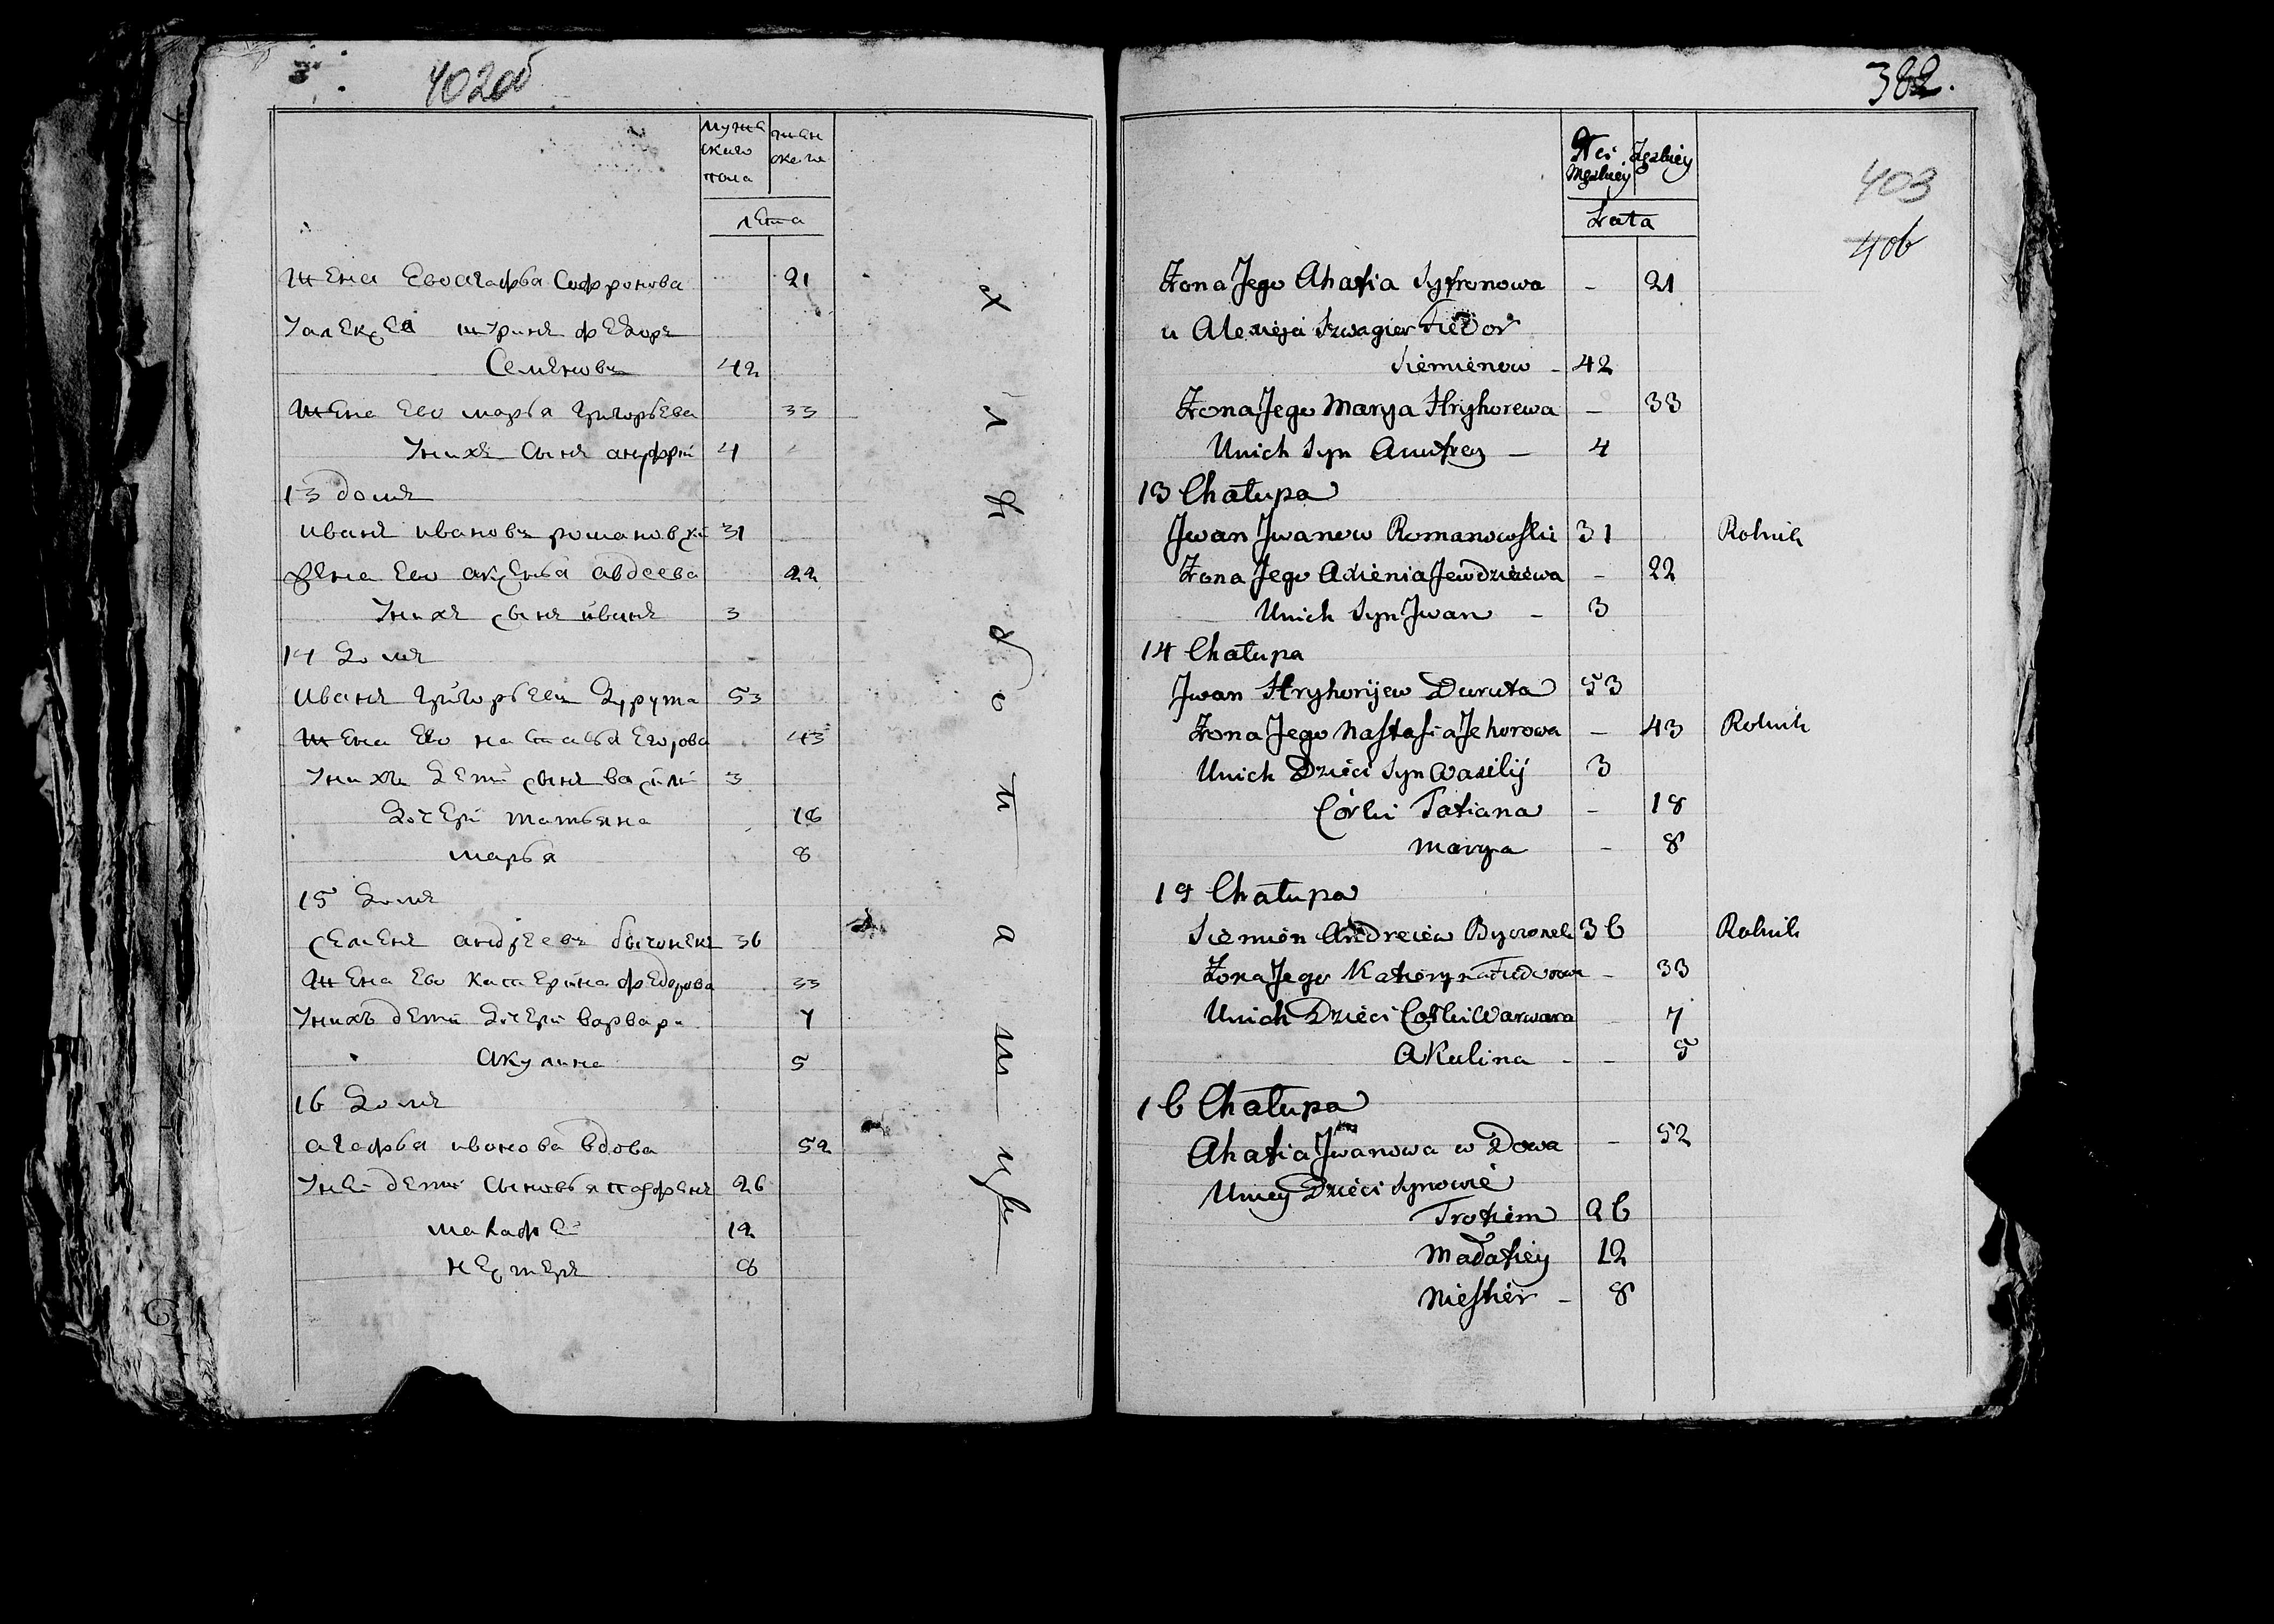 402об
мужескаго пола
женскаго
лета
Жена Его агафья Сафронова 21
У алексея шуринъ федоръ
Семеновъ 42
Жена Ево марья григорьева 33
У нихъ сынъ ануфрий 4
13 домъ
иванъ ивановъ романовский 31
жена Ево аксенья авдеева 22
У нихъ сынъ иванъ 3
14 домъ
иванъ григорьевъ дурута 53
Жена Ево настасья Егорова 43
У нихъ дети сынъ василий 3
дочери татьяна 18
марья 8
15 домъ
семенъ андреевъ бычонекъ 36
Жена Ево катерина федорова 33
У нихъ дети дочери варвара 7
Акулина 5
16 домъ
агафья иванова вдова 52
У ней дети сыновья 26
малафей 12
нестеръ 8
хлебопашцы
382.
403
406
Płci Męzkiey
Żeńskiey
Lata
Żona Jego Ahafia Syfronowa - 21
u Alexieja Szwagier Fiedor
Siemienow - 42
Żona Jego Marya Hryhorewa - 33
Unich Syn Anufrey - 4
13 Chałupa
Jwan Jwanow Romanowski 31 Rolnik
Żona Jego Axienia Jewdziejewa - 22
Unich Syn Jwan - 3
14 Chałupa
Jwan Hryhorijew Duruta 53
Żona Jego Nastasia Jehorowa - 43 Rolnik
Unich Dzieci Syn Wasilij 3
Córki Tatiana - 18
Marya - 8
15 Chałupa
Siemion Andreiew Byczonek 36 Rolnik
Żona Jego Katieryna Fiedorowa - 33
Unich Dzieci Corki Warwara 7
Akulina - - 5
16 Chałupa
Ahafia Jwanowa w Dowa - 52
Uniey Dzieci Synowie
Trofiem 26
Małafiey 12
Niestier - 8